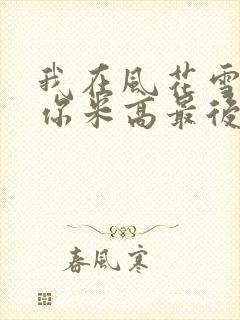 我在風花雪
你米高最後
春風寒